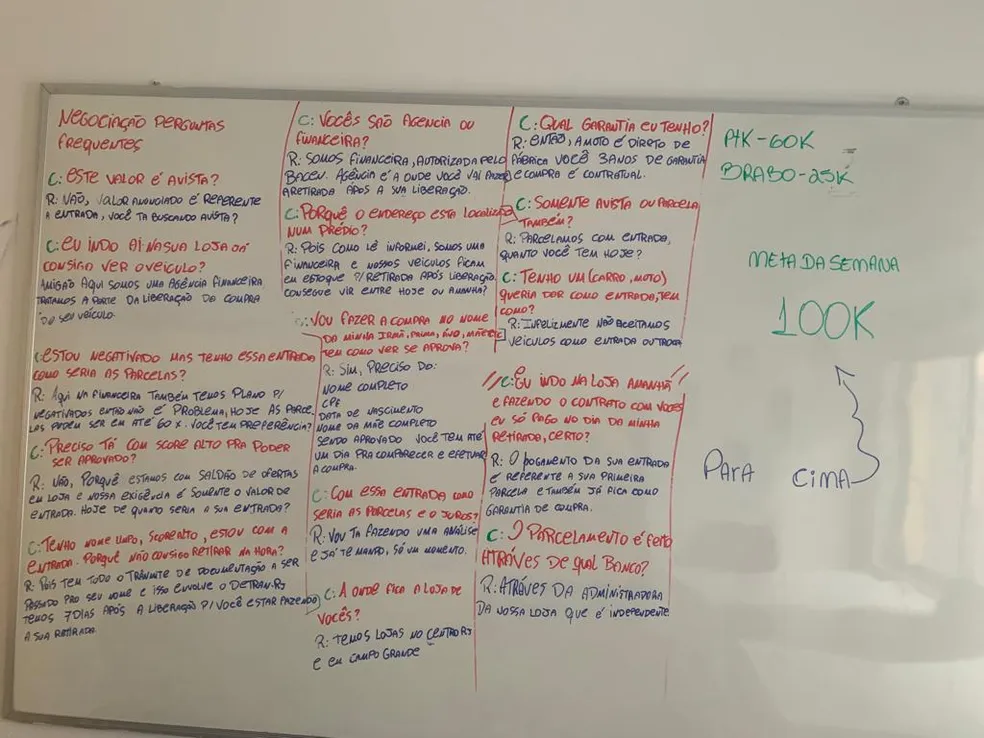 NEGOCIAÇÃO PERGUNTAS
FREQUENTES
C: ESTE VALOR É AVISTA?
R: NÃO, VALOR ANUNCIADO É REFERENTE
A ENTRADA, VOCÊ TA BUSCANDO AVISTA?
C: EU INDO AI NA SUA LOJA DÁ
CONSIGO VER O VEICULO?
AMIGÃO AQUI SOMOS UMA AGÊNCIA FINANCEIRA
TRATAMOS A PARTE DA LIBERAÇÃO DA COMPRA
DO SEU VEÍCULO.
C: ESTOU NEGATIVADO MAS TENHO ESSA ENTRADA
COMO SERIA AS PARCELAS?
R: AQUI NA FINANCEIRA TAMBÉM TEMOS PLANO P/
NEGATIVADOS ENTÃO NÃO É PROBLEMA, HOJE AS PARCE-
LAS PODEM SER EM ATÉ 60 X. VOCÊ TEM PREFERÊNCIA?
C: PRECISO TÁ COM SCORE ALTO PRA PODER
SER APROVADO?
R: NÃO, PORQUÊ ESTAMOS COM SALDÃO DE OFERTAS
EM LOJA E NOSSA EXIGÊNCIA É SOMENTE O VALOR DE
ENTRADA. HOJE DE QUANTO SERIA A SUA ENTRADA?
C: TENHO NOME LIMPO, SCORE ALTO, ESTOU COM A
ENTRADA. PORQUÊ NÃO CONSIGO RETIRAR NA HORA?
R: POIS TEM TODO O TRÂMITE DE DOCUMENTAÇÃO A SER
PASSADO PRO SEU NOME E ISSO ENVOLVE O DETRAN-RJ
TEMOS 7 DIAS APÓS A LIBERAÇÃO P/ VOCÊ ESTAR FAZENDO
A SUA RETIRADA.
C: VOCÊS SÃO AGENCIA OU
FINANCEIRA?
R: SOMOS FINANCEIRA, AUTORIZADA PELO
BACEN. AGÊNCIA É A ONDE VOCÊ VAI FAZER
A RETIRADA APÓS A SUA LIBERAÇÃO.
C: PORQUÊ O ENDEREÇO ESTA LOCALIZADO
NUM PRÉDIO?
R: POIS COMO LÊ INFORMEI, SOMOS UMA
FINANCEIRA E NOSSOS VEÍCULOS FICAM
EM ESTOQUE P/ RETIRADA APÓS LIBERAÇÃO.
CONSEGUE VIR ENTRE HOJE OU AMANHÃ?
C: VOU FAZER A COMPRA NO NOME
DA MINHA IRMÃ, PRIMA, AVÓ, MÃE ETC
TEM COMO VER SE APROVA?
R: SIM, PRECISO DO:
NOME COMPLETO
CPF
DATA DE NASCIMENTO
NOME DA MÃE COMPLETO
SENDO APROVADO VOCÊ TEM ATÉ
UM DIA PRA COMPARECER E EFETUAR
A COMPRA.
C: COM ESSA ENTRADA COMO
SERIA AS PARCELAS E O JUROS?
R: VOU TA FAZENDO UMA ANÁLISE
E JÁ TE MANDO, SÓ UM MOMENTO.
C: A ONDE FICA A LOJA DE
VOCÊS?
R: TEMOS LOJAS NO CENTRO RJ
E EM CAMPO GRANDE
C: QUAL GARANTIA EU TENHO?
R: ENTÃO, A MOTO É DIRETO DE
FÁBRICA VOCÊ 3 ANOS DE GARANTIA
E COMPRA É CONTRATUAL.
C: SOMENTE AVISTA OU PARCELA
TAMBÉM?
R: PARCELAMOS COM ENTRADA,
QUANTO VOCÊ TEM HOJE?
C: TENHO UM (CARRO, MOTO)
QUERIA DAR COMO ENTRADA, TEM
COMO?
R: INFELIZMENTE NÃO ACEITAMOS
VEICULOS COMO ENTRADA OU TROCA
C: EU INDO NA LOJA AMANHÃ
E FAZENDO O CONTRATO COM VOCÊS
EU SÓ PAGO NO DIA DA MINHA
RETIRADA, CERTO?
R: O PAGAMENTO DA SUA ENTRADA
É REFERENTE A SUA PRIMEIRA
PARCELA E TAMBÉM JÁ FICA COMO
GARANTIA DE COMPRA.
C: O PARCELAMENTO É FEITO
ATRÁVES DE QUAL BANCO?
R: ATRÁVES DA ADMINISTRADORA
DA NOSSA LOJA QUE É INDEPENDENTE
PTK-60K
BRABO-25K
META DA SEMANA
100K
PARA CIMA